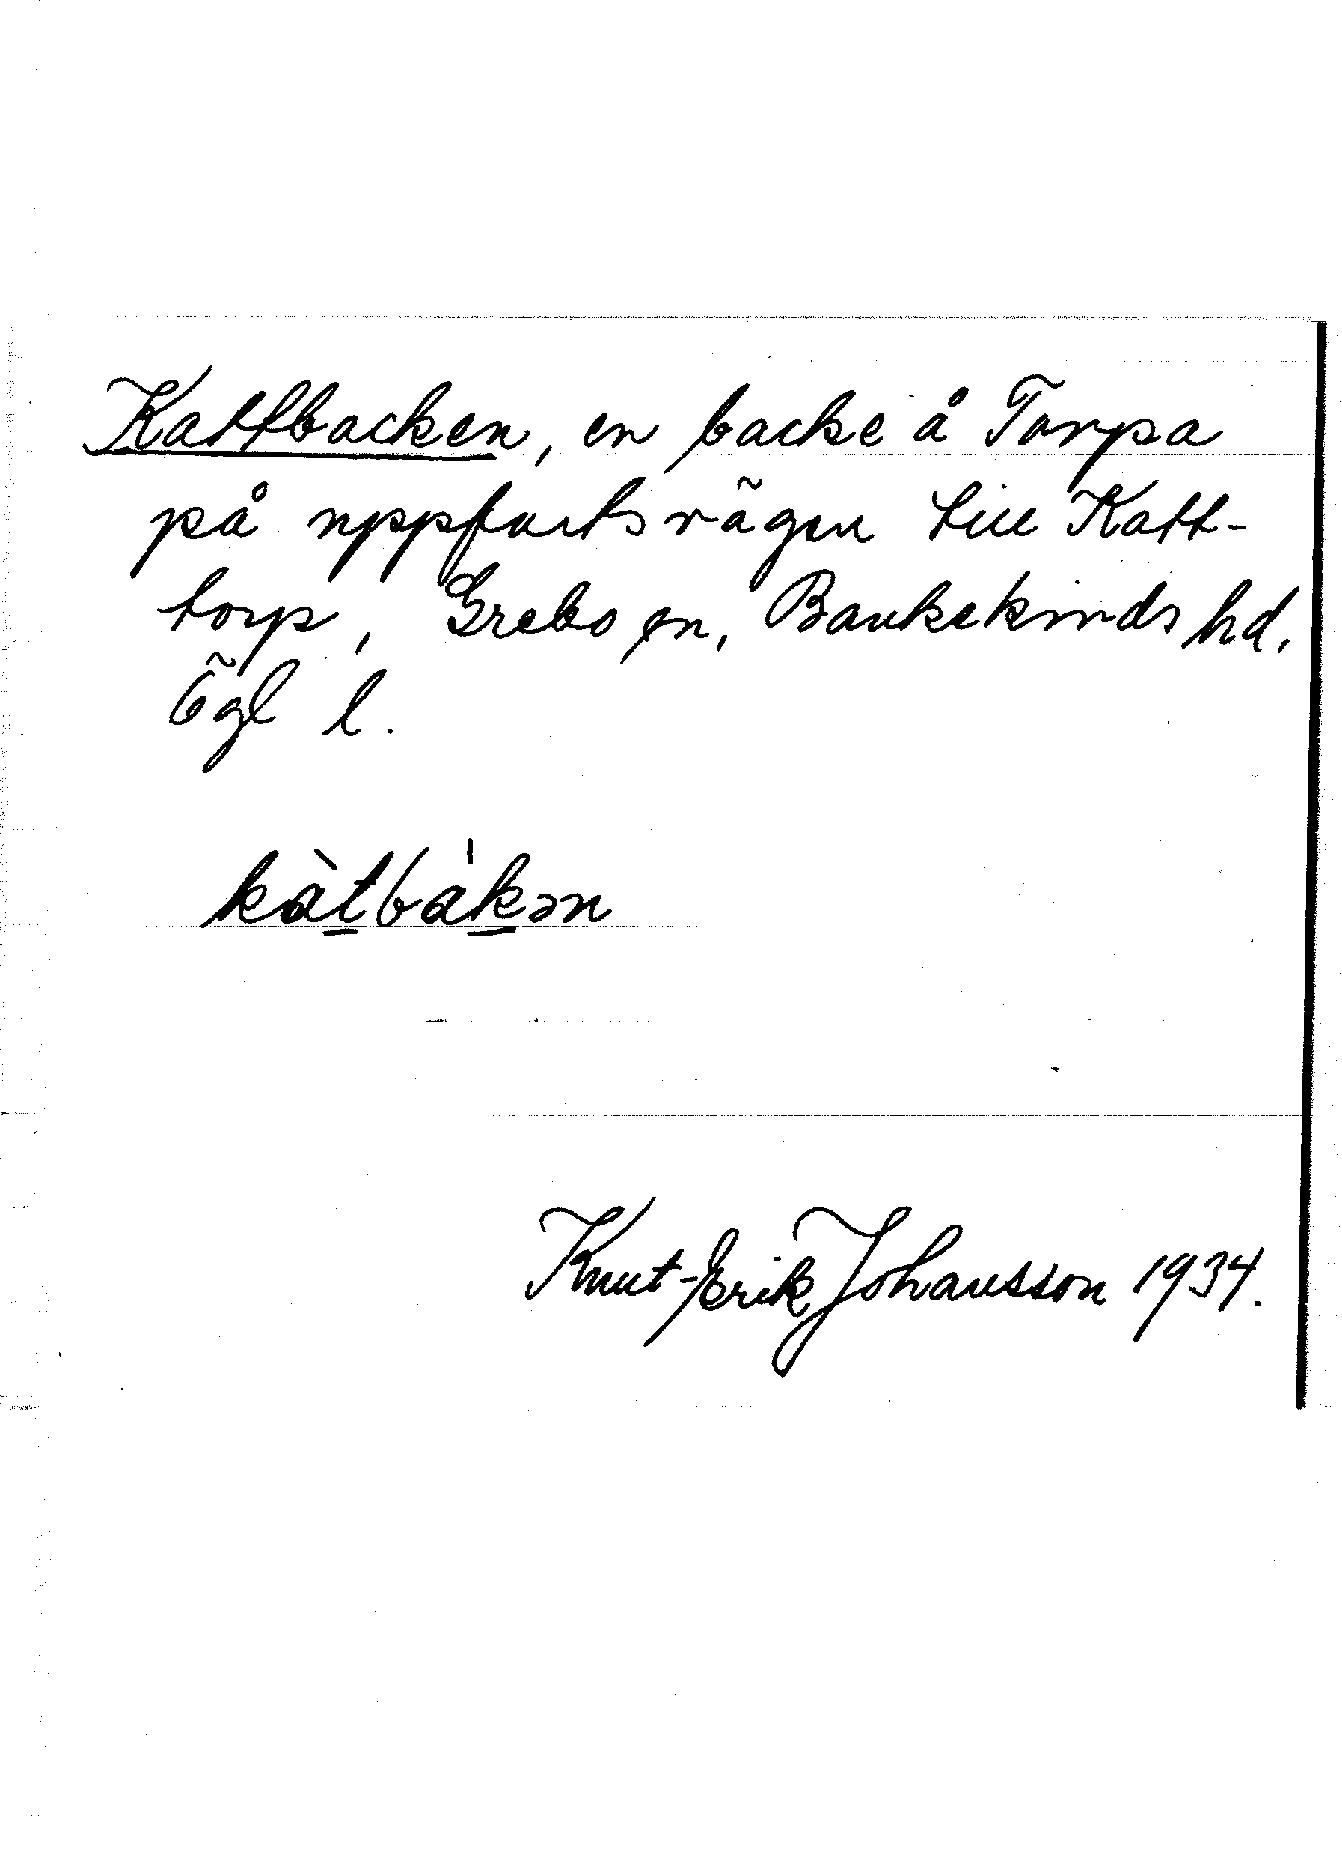 Kattbacken, en backe å Torpa
på uppfartsvägen till Katt-
torp, Grebo sn, Bankekinds hd,
Ögl l.
kàt̲bàk̲ən
Knut-Erik Johansson 1934.